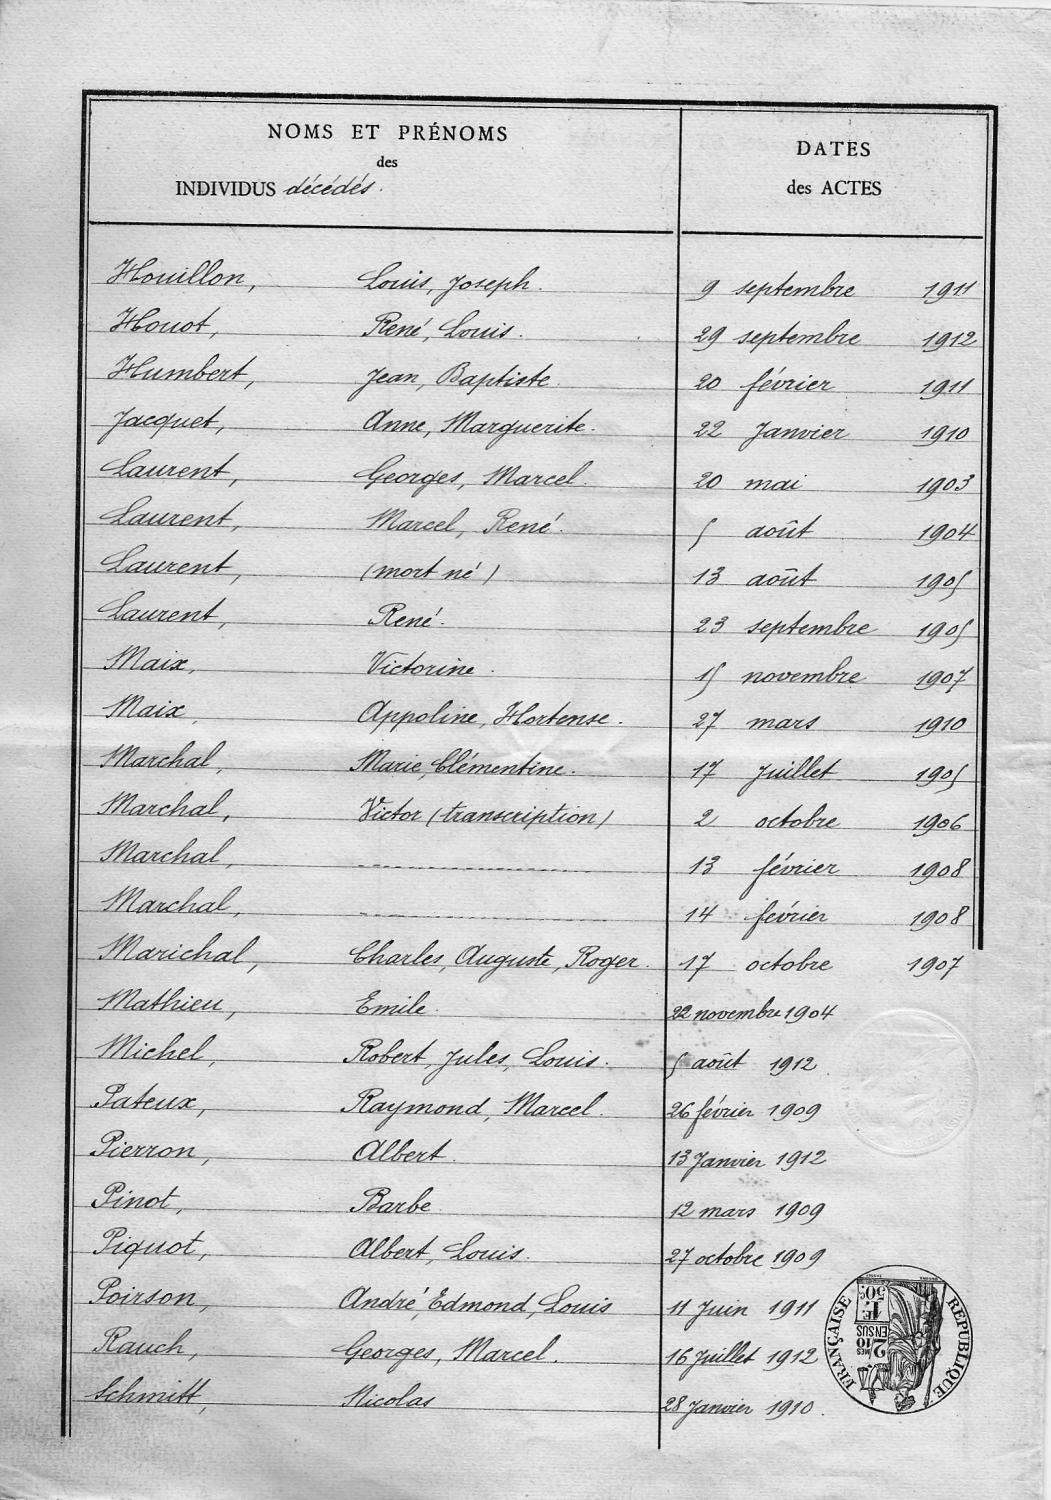 NOMS ET PRÉNOMS
des
INDIVIDUS décédés.
DATES
des ACTES
Houillon, Louis, Joseph. 9 septembre 1911
Houot, René, Louis. 29 septembre 1912
Humbert, Jean, Baptiste. 20 février 1911
Jacquet, Anne, Marguerite. 22 Janvier 1910
Laurent, Georges, Marcel. 20 mai 1903
Laurent, Marcel, René. 5 août 1904
Laurent, (mort né) 13 août 1905
Laurent, René. 23 septembre 1905
Maix, Victorine. 15 novembre 1907
Maix, Appoline, Hortense. 27 mars 1910
Marchal, Marie, Clémentine. 17 Juillet 1905
Marchal, Victor (transcription) 2 octobre 1906
Marchal, 13 février 1908
Marchal, 14 février 1908
Marichal, Charles, Auguste, Roger. 17 octobre 1907
Mathieu, Emile. 22 novembre 1904
Michel, Robert, Jules, Louis. 5 août 1912.
Pateux, Raymond, Marcel. 26 février 1909
Pierron, Albert. 13 Janvier 1912
Pinot, Barbe 12 mars 1909
Piquot, Albert, Louis. 27 octobre 1909
Poirson, André, Edmond, Louis 11 Juin 1911
Rauch, Georges, Marcel. 16 Juillet 1912
Schmitt, Nicolas 28 Janvier 1910.
RÉPUBLIQUE FRANÇAISE
2/10 MES
EN SUS
1F.
50c.